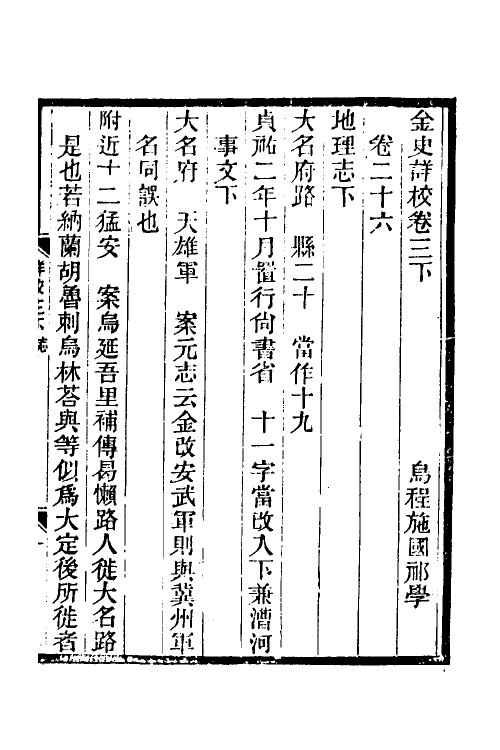 金史詳校卷三下　烏程施國祁學
卷二十六
地理志下
大名府路　縣二十　當作十九
貞祐二年十月置行尙書省　十一字當改入下兼漕河
事文下
大名府　天雄軍　案元志云金改安武軍則與冀州軍
名同誤也
附近十二猛安　案烏延吾里補傳曷懶路人徙大名路
是也若納蘭胡魯剌烏林荅與等似爲大定後所徙者
詳校三下　志
一